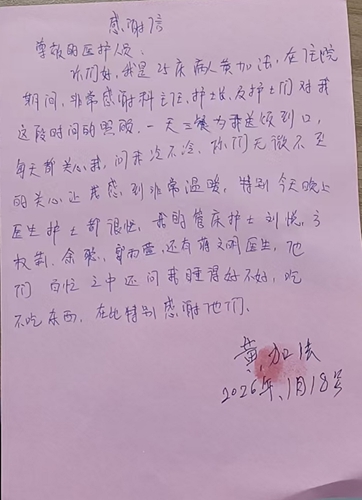 感谢信
尊敬的医护人员:
你们好,我是25床病人黄加法,在住院
期间,非常感谢科主任、护士长及护士们对我
这段时间的照顾,一天三餐为我送饭到口,
每天都关心我,问我冷不冷,你们无微不至
的关心让我感到非常温暖,特别今天晚上
医生护士都很忙,我的管床护士刘悦、方
权莉、余聪、还有蒋文明医生,他
们百忙之中还问我睡得好不好,吃
不吃东西,在此特别感谢他们、
黄加法
2026年、1月18号